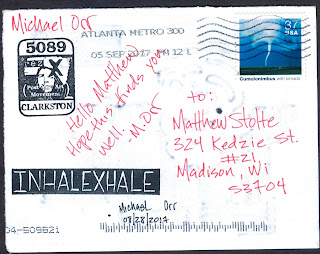 Michael Orr
ATLANTA METRO 300
05 SEP 2017 PM 12 L
37
USA
Cumulonimbus with tornado
5089
Movement
CLARKSTON
Hello Matthew
Hope this finds you
well.
-M.Orr
to:
Matthew Stolte
324 Kedzie St.
#21
Madison, Wi
53704
INHALEXHALE
Michael Orr
08/28/2017
04-509821